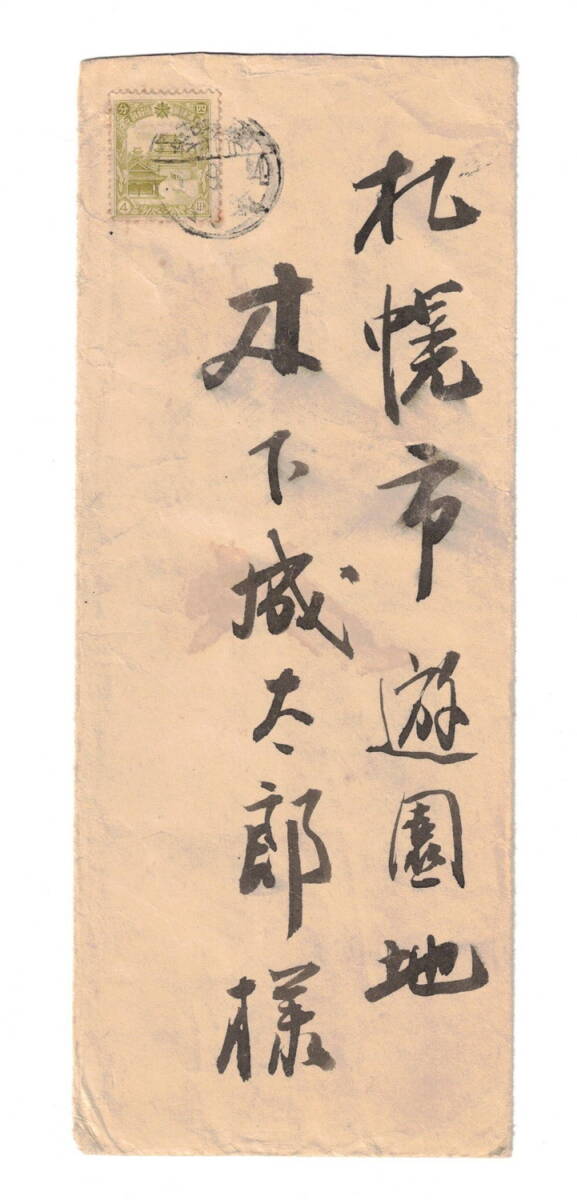 札幌市遊園地
木下城太郎様
四分
4